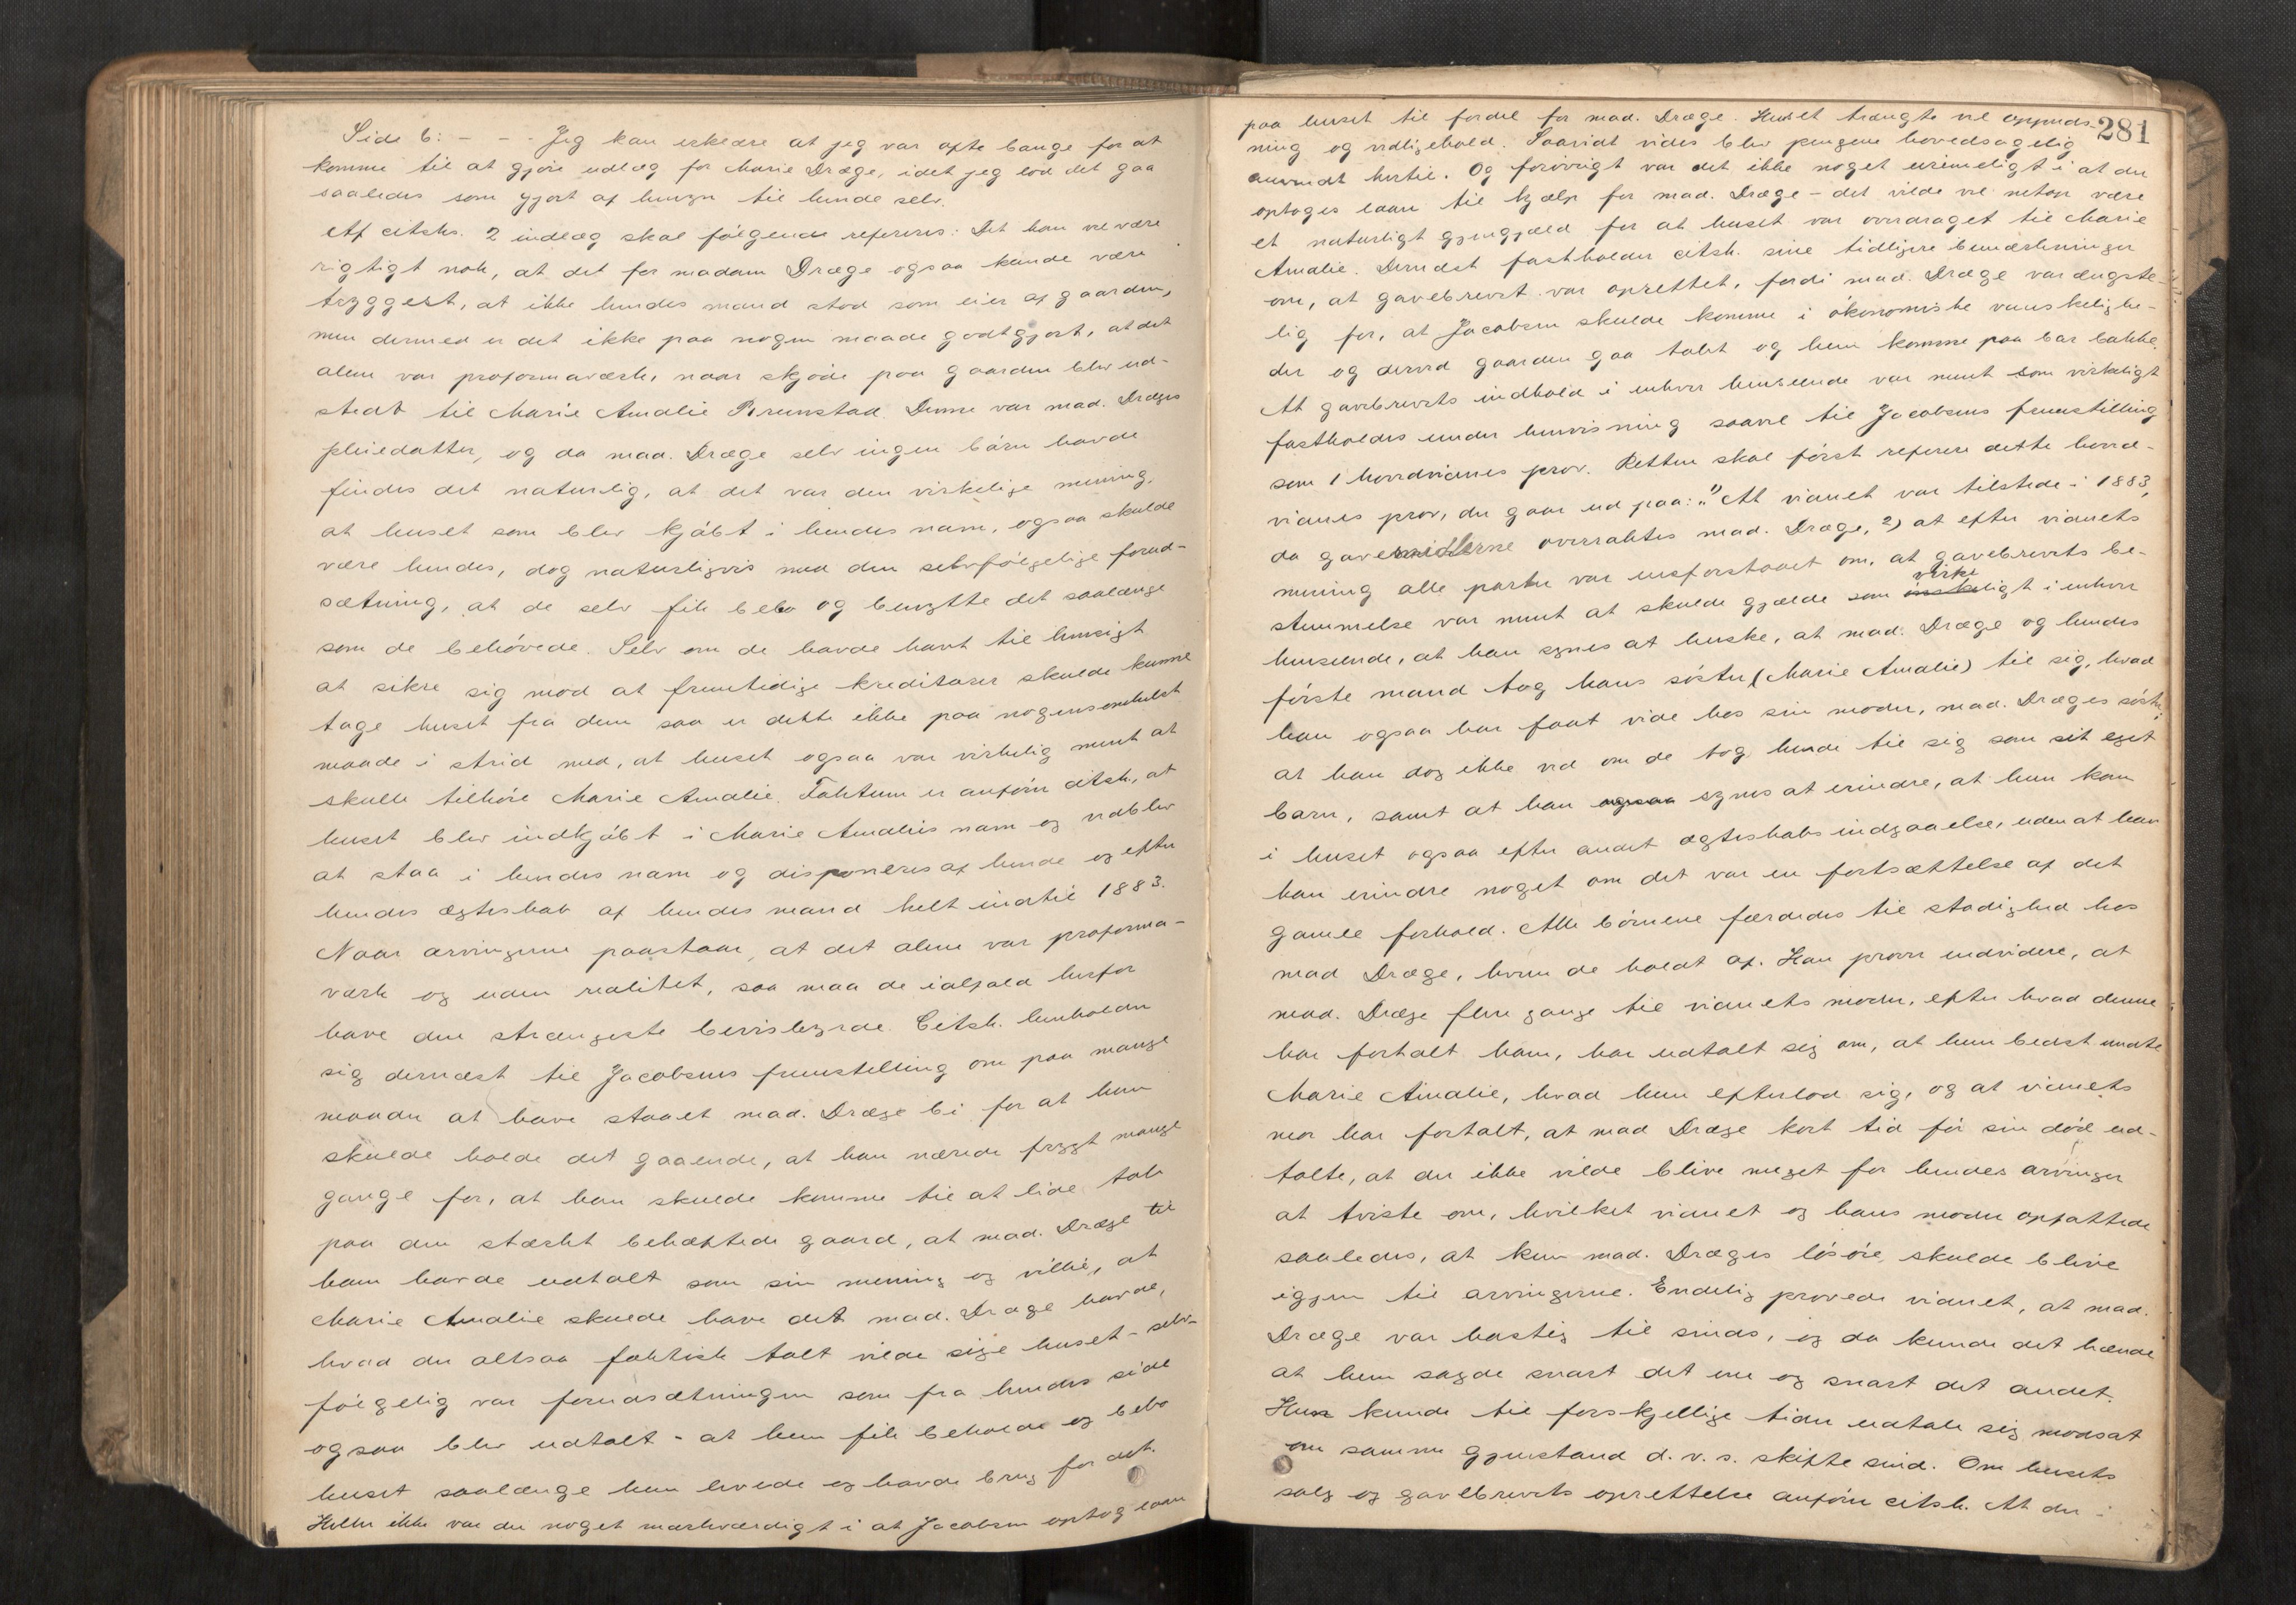 Side 6: - - - Jeg kan erklære at jeg var ofte bange for at
komme til at gjøre udlæg for Marie Dræge, idet jeg lod det gaa
saaledes som gjort af hensyn til hende selv.
Af citsts. 2 indlæg skal følgende refereres: Det kan vel være
rigtigt nok, at det for madam Dræge ogsaa kunde være
tryggest, at ikke hendes mand stod som eier af gaarden,
men dermed er det ikke paa nogen maade godtgjort, at det
alene var proformaværk, naar skjøde paa gaarden blev ud-
stedt til Marie Amalie Brunstad. Denne var mad. Dræges
pleiedatter, og da mad. Dræge selv ingen børn havde
findes det naturlig, at det var den virkelige mening,
at huset som blev kjøbt i hendes navn, ogsaa skulde
være hendes, dog naturligvis med den selvfølgelige forud-
sætning, at de selv fik bebo og benytte det saalænge
som de behøvede. Selv om de havde havt til hensigt
at sikre sig mod at fremtidige kreditorer skulde kunne
tage huset fra dem saa er dette ikke paa nogensomhelst
maade i strid med, at huset ogsaa var virkelig ment at
skulle tilhøre Marie Amalie. Faktum er anfører citsh, at
huset blev indkjøbt i Marie Amalies navn og vedblev
at staa i hendes navn og disponeres af hende og efter
hendes ægteskab af hendes mand helt indtil 1883.
Naar arvingerne paastaar, at det alene var proforma-
værk og uden realitet, saa maa de ialfald herfor
have den strængeste bevisbyrde. Citsh. henholder
sig dernæst til Jacobsens fremstilling om paa mange
maader at have staaet mad. Dræge bi for at hun
skulde holde det gaaende, at han nærede frygt mange
gange for, at han skulde komme til at lide tab
paa den stærkt behæftede gaard, at mad. Dræge til
ham havde udtalt som sin mening og villie, at
Marie Amalie skulde have det mad. Dræge havde,
hvad der altsaa faktisk talt vilde sige huset - selv-
følgelig var forudsætningen som fra hendes side
ogsaa blev udtalt - at hun fik beholde og bebo
huset saalænge hun levede og havde brug for det.
Heller ikke var der noget mærkværdigt i at Jacobsen optog laan
281
paa huset til fordel for mad. Dræge. Huset trængte vel oppuds-
ning og vedligehold. Saavidt vides blev pengene hovedsagelig
anvendt hertil. Og forøvrigt var det ikke noget urimeligt i at der
optoges laan til hjælp for mad. Dræge - det vilde vel netop være
et naturligt gjengjæld for at huset var overdraget til Marie
Amalie. Dernæst fastholder citsh. sine tidligere bemærkninger
om, at gavebrevet var oprettet, fordi mad. Dræge var ængste-
lig for, at Jacobsen skulde komme i økonomiske vanskelighe-
der og derved gaarden gaa tabt og hun komme paa bar bakke.
At gavebrevets indhold i enhver henseende var ment som virkeligt
fastholdes under henvisning saavel til Jacobsens fremstilling
som 1 hovedvidnes prov. Retten skal først referere dette hoved-
vidnes prov, der gaar ud paa: "1) At vidnet var tilstede i 1883,
da gavemidlerne overraktes mad. Dræge, 2) at efter vidnets
mening alle parter var enforstaaet om, at gavebrevets be-
stemmelse var ment at skulde gjælde som virkeligt i enhver
henseende, at han synes at huske, at mad. Dræge og hendes
første mand tog hans søster (Marie Amalie) til sig, hvad
han ogsaa har faat vide hos sin moder, mad. Dræges søster,
at han dog ikke ved om de tog hende til sig som sit eget
barn, samt at han ogsaa synes at erindre, at hun kom
i huset ogsaa efter andet ægteskabs indgaaelse, uden at han
kan erindre noget om det var en fortsættelse af det
gamle forhold. Alle børnene færdedes til stadighed hos
mad Dræge, hvem de holdt af. Han prover endvidere, at
mad. Dræge flere gange til vidnets moder, efter hvad denne
har fortalt ham, har udtalt sig om, at hun bedst undte
Marie Amalie, hvad hun efterlod sig, og at vidnets
mor har fortalt, at mad Dræge kort tid før sin død ud-
talte, at der ikke vilde blive meget for hendes arvinger
at tviste om, hvilket vidnet og hans moder opfattede
saaledes, at kun mad. Dræges løsøre skulde blive
igjen til arvingerne. Endelig provede vidnet, at mad.
Dræge var hastig til sinds, og da kunde det hænde
at hun sagde snart det ene og snart det andet.
Hun kunde til forskjellige tider udtale sig modsat
om samme gjenstand d. v. s. skifte sind. Om husets
salg og gavebrevets oprettelse anfører citsh. At der i